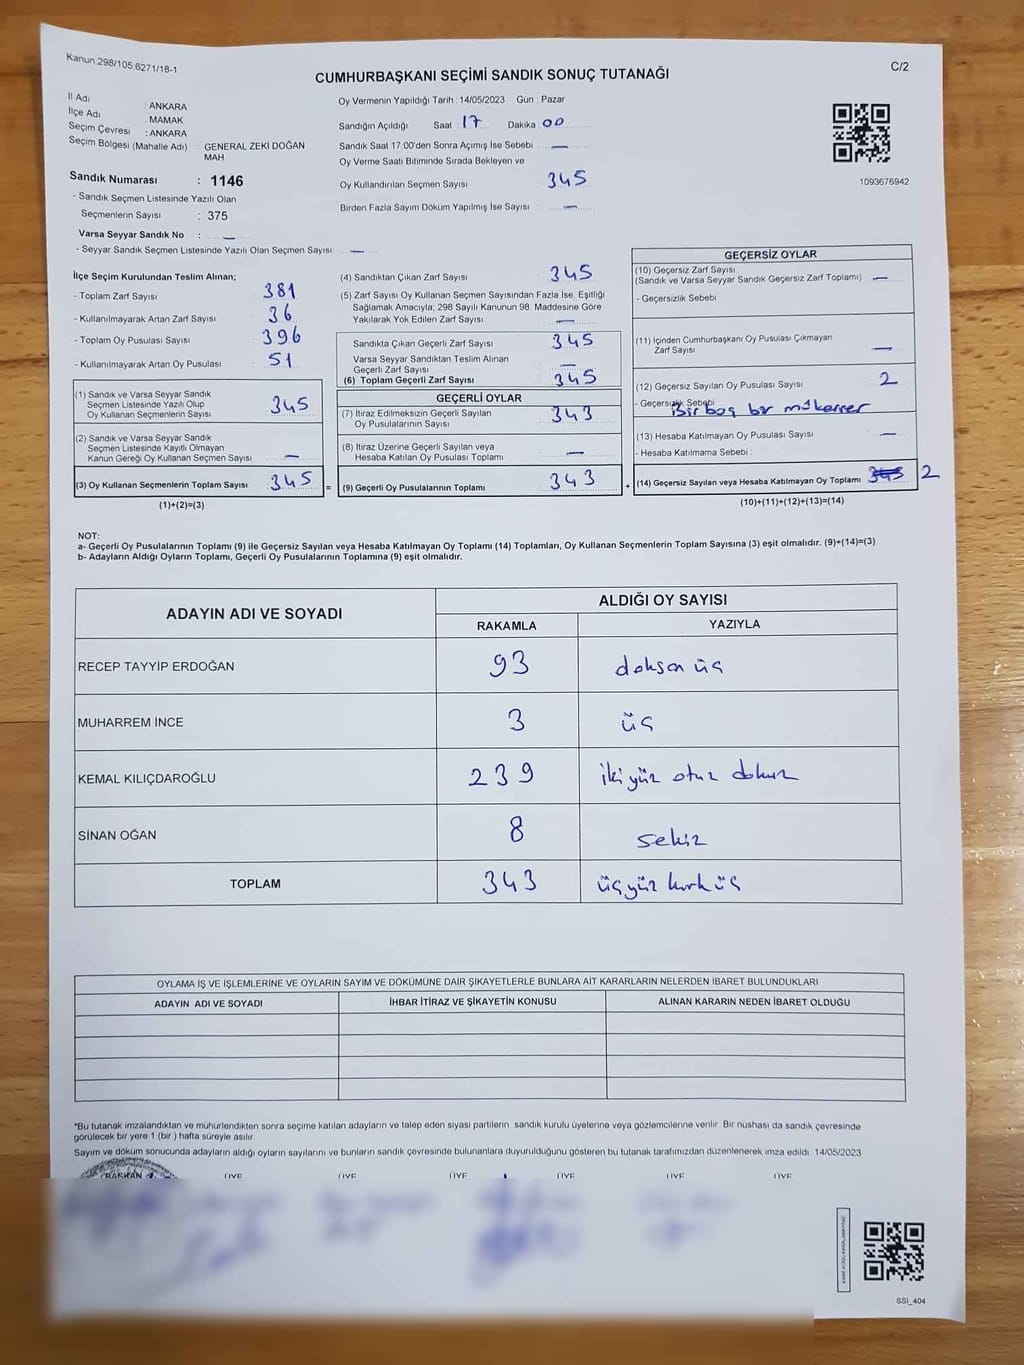 Kanun.298/105,6271/18-1
C/2
CUMHURBAŞKANI SEÇİMİ SANDIK SONUÇ TUTANAĞI
İl Adı : ANKARA
İlçe Adı : MAMAK
Seçim Çevresi : ANKARA
Seçim Bölgesi (Mahalle Adı) : GENERAL ZEKİ DOĞAN
MAH
Sandık Numarası : 1146
- Sandık Seçmen Listesinde Yazılı Olan
Seçmenlerin Sayısı : 375
Varsa Seyyar Sandık No : —
- Seyyar Sandık Seçmen Listesinde Yazılı Olan Seçmen Sayısı: —
Oy Vermenin Yapıldığı Tarih : 14/05/2023 Gün : Pazar
Sandığın Açıldığı Saat : 17 Dakika 00
Sandık Saat 17:00'den Sonra Açımış İse Sebebi : —
Oy Verme Saati Bitiminde Sırada Bekleyen ve
Oy Kullandırılan Seçmen Sayısı : 345
Birden Fazla Sayım Döküm Yapılmış İse Sayısı : —
1093676942
İlçe Seçim Kurulundan Teslim Alınan;
- Toplam Zarf Sayısı 381
- Kullanılmayarak Artan Zarf Sayısı 36
- Toplam Oy Pusulası Sayısı 396
- Kullanılmayarak Artan Oy Pusulası 51
(1) Sandık ve Varsa Seyyar Sandık
Seçmen Listesinde Yazılı Olup
Oy Kullanan Seçmenlerin Sayısı 345
(2) Sandık ve Varsa Seyyar Sandık
Seçmen Listesinde Kayıtlı Olmayan
Kanun Gereği Oy Kullanan Seçmen Sayısı —
(3) Oy Kullanan Seçmenlerin Toplam Sayısı : 345 =
(1)+(2)=(3)
(4) Sandıktan Çıkan Zarf Sayısı : 345
(5) Zarf Sayısı Oy Kullanan Seçmen Sayısından Fazla İse, Eşitliği
Sağlamak Amacıyla; 298 Sayılı Kanunun 98. Maddesine Göre
Yakılarak Yok Edilen Zarf Sayısı : —
Sandıkta Çıkan Geçerli Zarf Sayısı : 345
Varsa Seyyar Sandıktan Teslim Alınan
Geçerli Zarf Sayısı : —
(6) Toplam Geçerli Zarf Sayısı : 345
GEÇERLİ OYLAR
(7) İtiraz Edilmeksizin Geçerli Sayılan
Oy Pusulasının Sayısı : 343
(8) İtiraz Üzerine Geçerli Sayılan veya
Hesaba Katılan Oy Pusulası Toplamı : —
(9) Geçerli Oy Pusulalarının Toplamı : 343 +
GEÇERSİZ OYLAR
(10) Geçersiz Zarf Sayısı
(Sandık ve Varsa Seyyar Sandık Geçersiz Zarf Toplamı) : —
- Geçersizlik Sebebi
(11) İçinden Cumhurbaşkanı Oy Pusulası Çıkmayan
Zarf Sayısı : —
(12) Geçersiz Sayılan Oy Pusulası Sayısı 2
- Geçersizlik Sebebi Bir boş bir mükerrer
(13) Hesaba Katılmayan Oy Pusulası Sayısı —
- Hesaba Katılmama Sebebi :
(14) Geçersiz Sayılan veya Hesaba Katılmayan Oy Toplamı 345 2
(10)+(11)+(12)+(13)=(14)
NOT:
a- Geçerli Oy Pusulalarının Toplamı (9) ile Geçersiz Sayılan veya Hesaba Katılmayan Oy Toplamı (14) Toplamları, Oy Kullanan Seçmenlerin Toplam Sayısına (3) eşit olmalıdır. (9)+(14)=(3)
b- Adayların Aldığı Oyların Toplamı, Geçerli Oy Pusulalarının Toplamına (9) eşit olmalıdır.
ADAYIN ADI VE SOYADI ALDIĞI OY SAYISI
RAKAMLA YAZIYLA
RECEP TAYYİP ERDOĞAN 93 doksan üç
MUHARREM İNCE 3 üç
KEMAL KILIÇDAROĞLU 239 ikiyüz otuz dokuz
SİNAN OĞAN 8 sekiz
TOPLAM 343 üçyüz kırk üç
OYLAMA İŞ VE İŞLEMLERİNE VE OYLARIN SAYIM VE DÖKÜMÜNE DAİR ŞİKAYETLERLE BUNLARA AİT KARARLARIN NELERDEN İBARET BULUNDUKLARI
ADAYIN ADI VE SOYADI İHBAR İTİRAZ VE ŞİKAYETİN KONUSU ALINAN KARARIN NEDEN İBARET OLDUĞU
*Bu tutanak imzalandıktan ve mühürlendikten sonra seçime katılan adayların ve talep eden siyasi partilerin sandık kurulu üyelerine veya gözlemcilerine verilir. Bir nüshası da sandık çevresinde
görülecek bir yere 1 (bir ) hafta süreyle asılır.
Sayım ve döküm sonucunda adayların aldığı oyların sayılarını ve bunların sandık çevresinde bulunanlara duyurulduğunu gösteren bu tutanak tarafımızdan düzenlenerek imza edildi. 14/05/2023
BAŞKAN ÜYE ÜYE ÜYE ÜYE ÜYE ÜYE
SSI_404